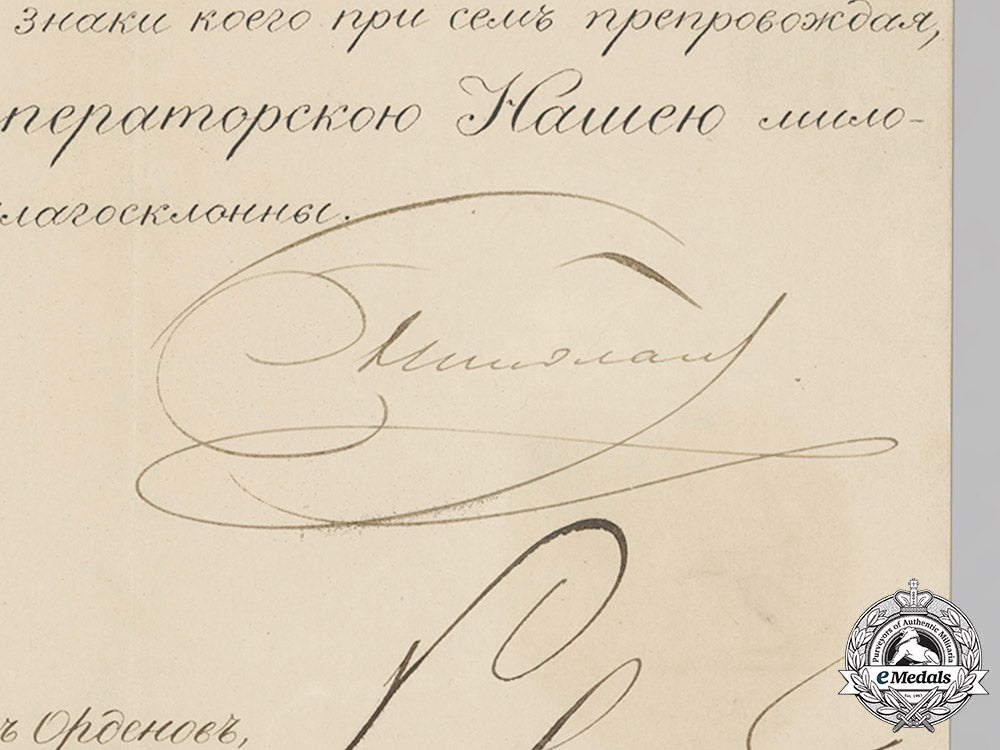 знаки коего при семъ препровождая,
ператорскою Нашею мило-
лагосклонны.
Николай
ъ Орденовъ,
Purveyors of Authentic Militaria
eMedals